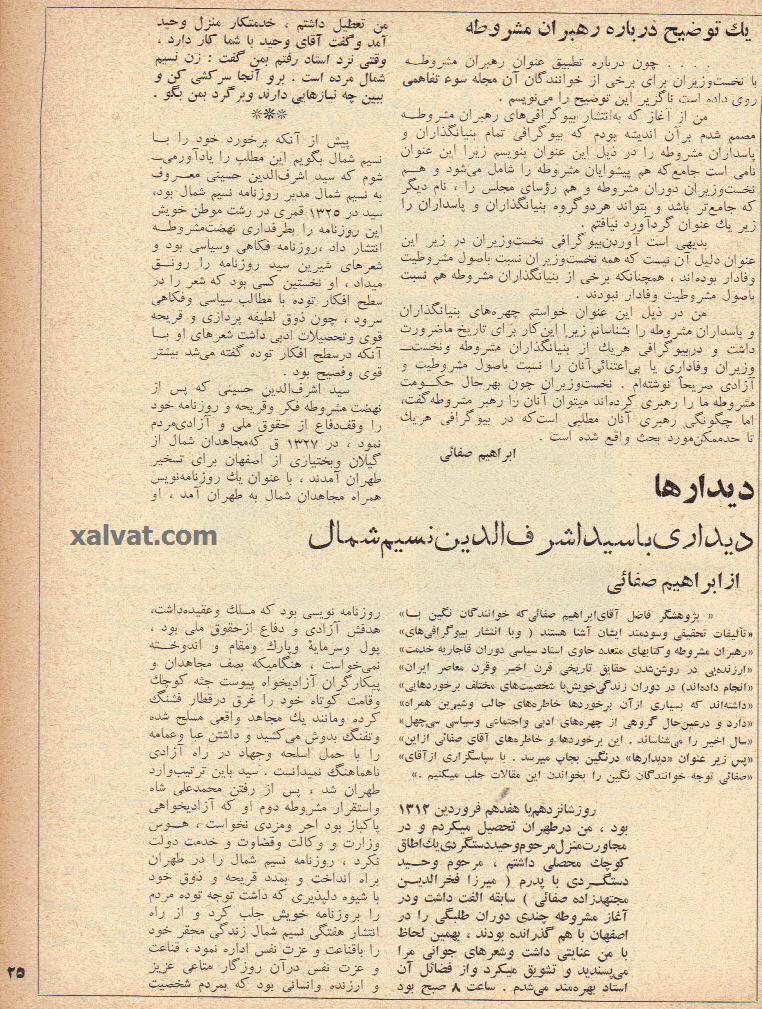 یك توضیح درباره رهبران مشروطه
. . . . چون درباره تطبیق عنوان رهبران مشروطــه
با نخست‌وزیران برای برخی از خوانندگان آن مجله سوء تفاهمی
روی داده است ناگزیر این توضیح را می‌نویسم .
من از آغاز که به‌انتشار بیوگرافی‌های رهبران مشروطــه
مصمم شدم برآن اندیشه بودم که بیوگرافی تمام بنیانگذاران و
پاسداران مشروطه را در ذیل این عنوان بنویسم زیرا این عنوان
نامی است جامع‌که هم پیشوایان مشروطه را شامل می‌شود و هــم
نخست‌وزیران دوران مشروطه و هم رؤسای مجلس را ، نام دیگر
که جامع‌تر باشد و بتواند هردوگروه بنیانگذاران و پاسداران را
زیر یك عنوان گردآورد نیافتم .
بدیهی است آوردن‌بیوگرافی نخست‌وزیران در زیر این
عنوان دلیل آن نیست که همه نخست‌وزیران نسبت باصول مشروطیت
وفادار بوده‌اند ، همچنانکه برخی از بنیانگذاران مشروطه هم نسبت
باصول مشروطیت وفادار نبودند .
من در ذیل این عنوان خواستم چهره‌های بنیانگذاران
و پاسداران مشروطه را بشناسانم زیرا این‌کار برای تاریخ ماضرورت
داشت و دربیوگرافی هریك از بنیانگذاران مشروطه ونخست‌ــ
وزیران وفاداری یا بی‌اعتنائی‌آنان را نسبت باصول مشروطیت و
آزادی صریحاً نوشته‌ام . نخست‌وزیران چون بهرحال حکــومت
مشروطه ما را رهبری کرده‌اند میتوان آنان را رهبر مشروطه‌گفت،
اما چگونگی رهبری آنان مطلبی است‌که در بیوگرافی هریك
تا حدممکن‌مورد بحث واقع شده است .
ابراهیم صفائی
دیدارها
دیداری‌باسیداشرف‌الدین‌نسیم‌شمال
ازابراهیم صفائی
« پژوهشگر فاضل آقای‌ابراهیم صفائی‌که خوانندگان نگین بــا»
«تألیفات تحقیقی وسودمند ایشان آشنا هستند ( وبا انتشار بیوگرافی‌های»
«رهبران مشروطه وکتابهای متعدد حاوی اسناد سیاسی دوران قاجاریه خدمت»
«ارزنده‌یی در روشن‌شدن حقایق تاریخی قرن اخیر وقرن معاصر ایران»
«انجام داده‌اند) در دوران زندگی‌خویش‌با شخصیت‌های مختلف برخوردهایی»
«داشته‌اند که بسیاری ازآن برخوردها خاطره‌های جالب وشیرین همراه»
«دارد و درعین‌حال گروهی از چهره‌های ادبی واجتماعی وسیاسی سی‌چهل»
«سال اخیر را می‌شناساند . این برخوردها و خاطره‌های آقای صفائی ازاین»
«پس زیر عنوان «دیدارها» درنگین بچاپ میرسد . با سپاسگزاری ازآقای»
«صفائی توجه خوانندگان نگین را بخواندن این مقالات جلب میکنیم .»
روزشانزدهم‌یا هفدهم فروردین ۱۳۱۲
بود ، من درطهران تحصیل میکردم و در
مجاورت‌منزل‌مرحوم‌وحیددستگردی‌یك‌اطاق
کوچك محصلی داشتم ، مرحوم وحــید
دستگــردی با پدرم ( میرزا فخرالدیــن
مجتهدزاده صفائی ) سابقه الفت داشت ودر
آغاز مشروطه چندی دوران طلبگی را در
اصفهان با هم گذرانده بودند ، بهمین لحاظ
با من عنایتی داشت وشعرهای جوانی مرا
می‌پسندید و تشویق میکرد واز فضائل آن
استاد بهره‌مند می‌شدم . ساعت ۸ صبح بود
من تعطیل داشتم ، خدمتکار منزل وحید
آمد وگفت آقای وحید با شما کار دارد ،
وقتی نزد استاد رفتم بمن گفت : زن نسیم
شمال مرده است . برو آنجا سرکشی کن و
ببین چه نیازهایی دارند وبرگرد بمن بگو .
***
پیش از آنکه برخورد خود را بــا
نسیم شمال بگویم این مطلب را یادآورمی‌ــ
شوم که سید اشرف‌الدین حسینی معــروف
به نسیم شمال مدیر روزنامه نسیم شمال بود،
سید در ۱۳۲۵ قمری در رشت موطن خویش
این روزنامه را بطرفداری نهضت‌مشروطــه
انتشار داد ،روزنامه فکاهی وسیاسی بود و
شعرهای شیرین سید روزنامه را رونــق
میداد ، او نخستین کسی بود که شعر را در
سطح افکار توده با مطالب سیاسی وفکاهی
سرود ، چون ذوق لطیفه پردازی و قریحه
قوی وتحصیلات ادبی داشت شعرهای او بــا
آنکه درسطح افکار توده گفته می‌شد بیشتر
قوی وفصیح بود .
سید اشرف‌الدین حسینی که پس از
نهضت مشروطه فکر وقریحه و روزنامه خود
را وقف‌دفاع از حقوق ملی و آزادی‌مردم
نمود ، در ۱۳۲۷ ق که‌مجاهدان شمال از
گیلان وبختیاری از اصفهان برای تسخیر
طهران آمدند ، با عنوان یك روزنامه‌نویس
همراه مجاهدان شمال به طهران آمد ، او
xalvat.com
روزنامه نویسی بود که مسلك وعقیده‌داشت،
هدفش آزادی و دفاع ازحقوق ملی بود ،
پول وسرمایهٔ وپارك ومقام و اندوخــته
نمی‌خواست ، هنگامیکه بصف مجاهدان و
پیکارگران آزادیخواه پیوست جثه کوچك
وقامت کوتاه خود را غرق درقطار فشنگ
کرده ومانند یك مجاهد واقعی مسلح شده
وتفنگ بدوش می‌کشید و داشتن عبا وعمامه
را با حمل اسلحه وجهاد در راه آزادی
ناهماهنگ نمیدانست . سید باین ترتیب‌وارد
طهران شد ، پس از رفتن محمدعلی شاه
واستقرار مشروطه دوم او که آزادیخواهی
پاکباز بود اجر ومزدی نخواست ، هــوس
وزارت و وکالت وقضاوت و خدمت دولت
نکرد ، روزنامه نسیم شمال را در طهران
براه انداخت و بمدد قریحه و ذوق خود
با شیوه دلپذیری که داشت توجه توده مردم
را بروزنامه خویش جلب کرد و از راه
انتشار هفتگی نسیم شمال زندگی محقر خود
را باقناعت و عزت نفس اداره نمود ، قناعت
و عزت نفس درآن روزگار متاعی عزیز
و ارزنده وانسانی بود که بمردم شخصیت
۲۵